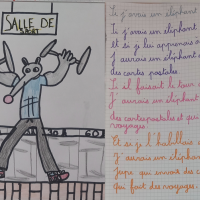 SALLE DE
SPORT
Si j'avais un éléphant
Si j'avais un éléphant
et si je lui apprenais à
J'aurais un éléphant
des cartes postales
Si il faisait le tour
J'aurais un éléphant
des cartes postales et qui
voyages
Et si je l'habillais
J'aurais un éléphant
Jupe qui envoie des c
qui fait des voyages.